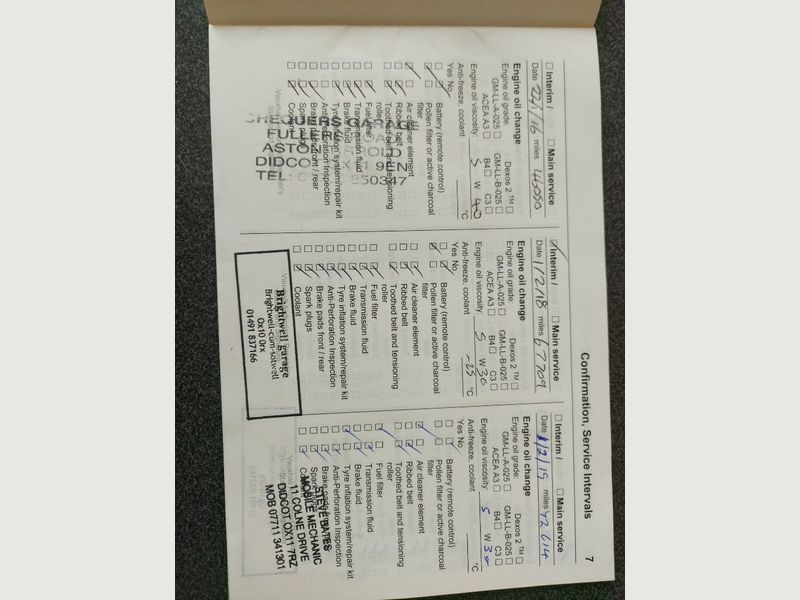 Confirmation, Service Intervals 7
☐ Interim / ☐ Main service
Date miles
Engine oil change
Engine oil grade: Dexos 2 ™ ☐
GM-LL-A-025 ☐ GM-LL-B-025 ☐
ACEA A3 ☐ B4 ☐ C3 ☐
Engine oil viscosity: 5 W 40
Anti-freeze, coolant °C
Yes No
Battery (remote control)
Pollen filter or active charcoal
filter
Air cleaner element
Ribbed belt
Toothed belt and tensioning
roller
Fuel filter
Transmission fluid
Brake fluid
Tyre inflation system/repair kit
Anti-Perforation Inspection
Brake pads front / rear
Spark plugs
Coolant
DIDCOT
TEL
☑ Interim / ☐ Main service
Date 1/2/18 miles 67709
Engine oil change
Engine oil grade: Dexos 2 ™ ☐
GM-LL-A-025 ☐ GM-LL-B-025 ☐
ACEA A3 ☐ B4 ☐ C3 ☐
Engine oil viscosity: 5 W 30
Anti-freeze, coolant -25 °C
Yes No
Battery (remote control)
Pollen filter or active charcoal
filter
Air cleaner element
Ribbed belt
Toothed belt and tensioning
roller
Fuel filter
Transmission fluid
Brake fluid
Tyre inflation system/repair kit
Anti-Perforation Inspection
Brake pads front / rear
Spark plugs
Coolant
Brightwell garage
Brightwell-cum-sotwell
Ox10 0rx
01491 837166
☐ Interim / ☐ Main service
Date 1/2/19 miles 72614
Engine oil change
Engine oil grade: Dexos 2 ™ ☐
GM-LL-A-025 ☐ GM-LL-B-025 ☐
ACEA A3 ☐ B4 ☐ C3 ☐
Engine oil viscosity: 5 W 30
Anti-freeze, coolant °C
Yes No
Battery (remote control)
Pollen filter or active charcoal
filter
Air cleaner element
Ribbed belt
Toothed belt and tensioning
roller
Fuel filter
Transmission fluid
Brake fluid
Tyre inflation system/repair kit
Anti-Perforation Inspection
Brake pads
Spark
STEVE BATES
MOBILE MECHANIC
11 COLNE DRIVE
DIDCOT OX11 7RZ
MOB 07711 341301